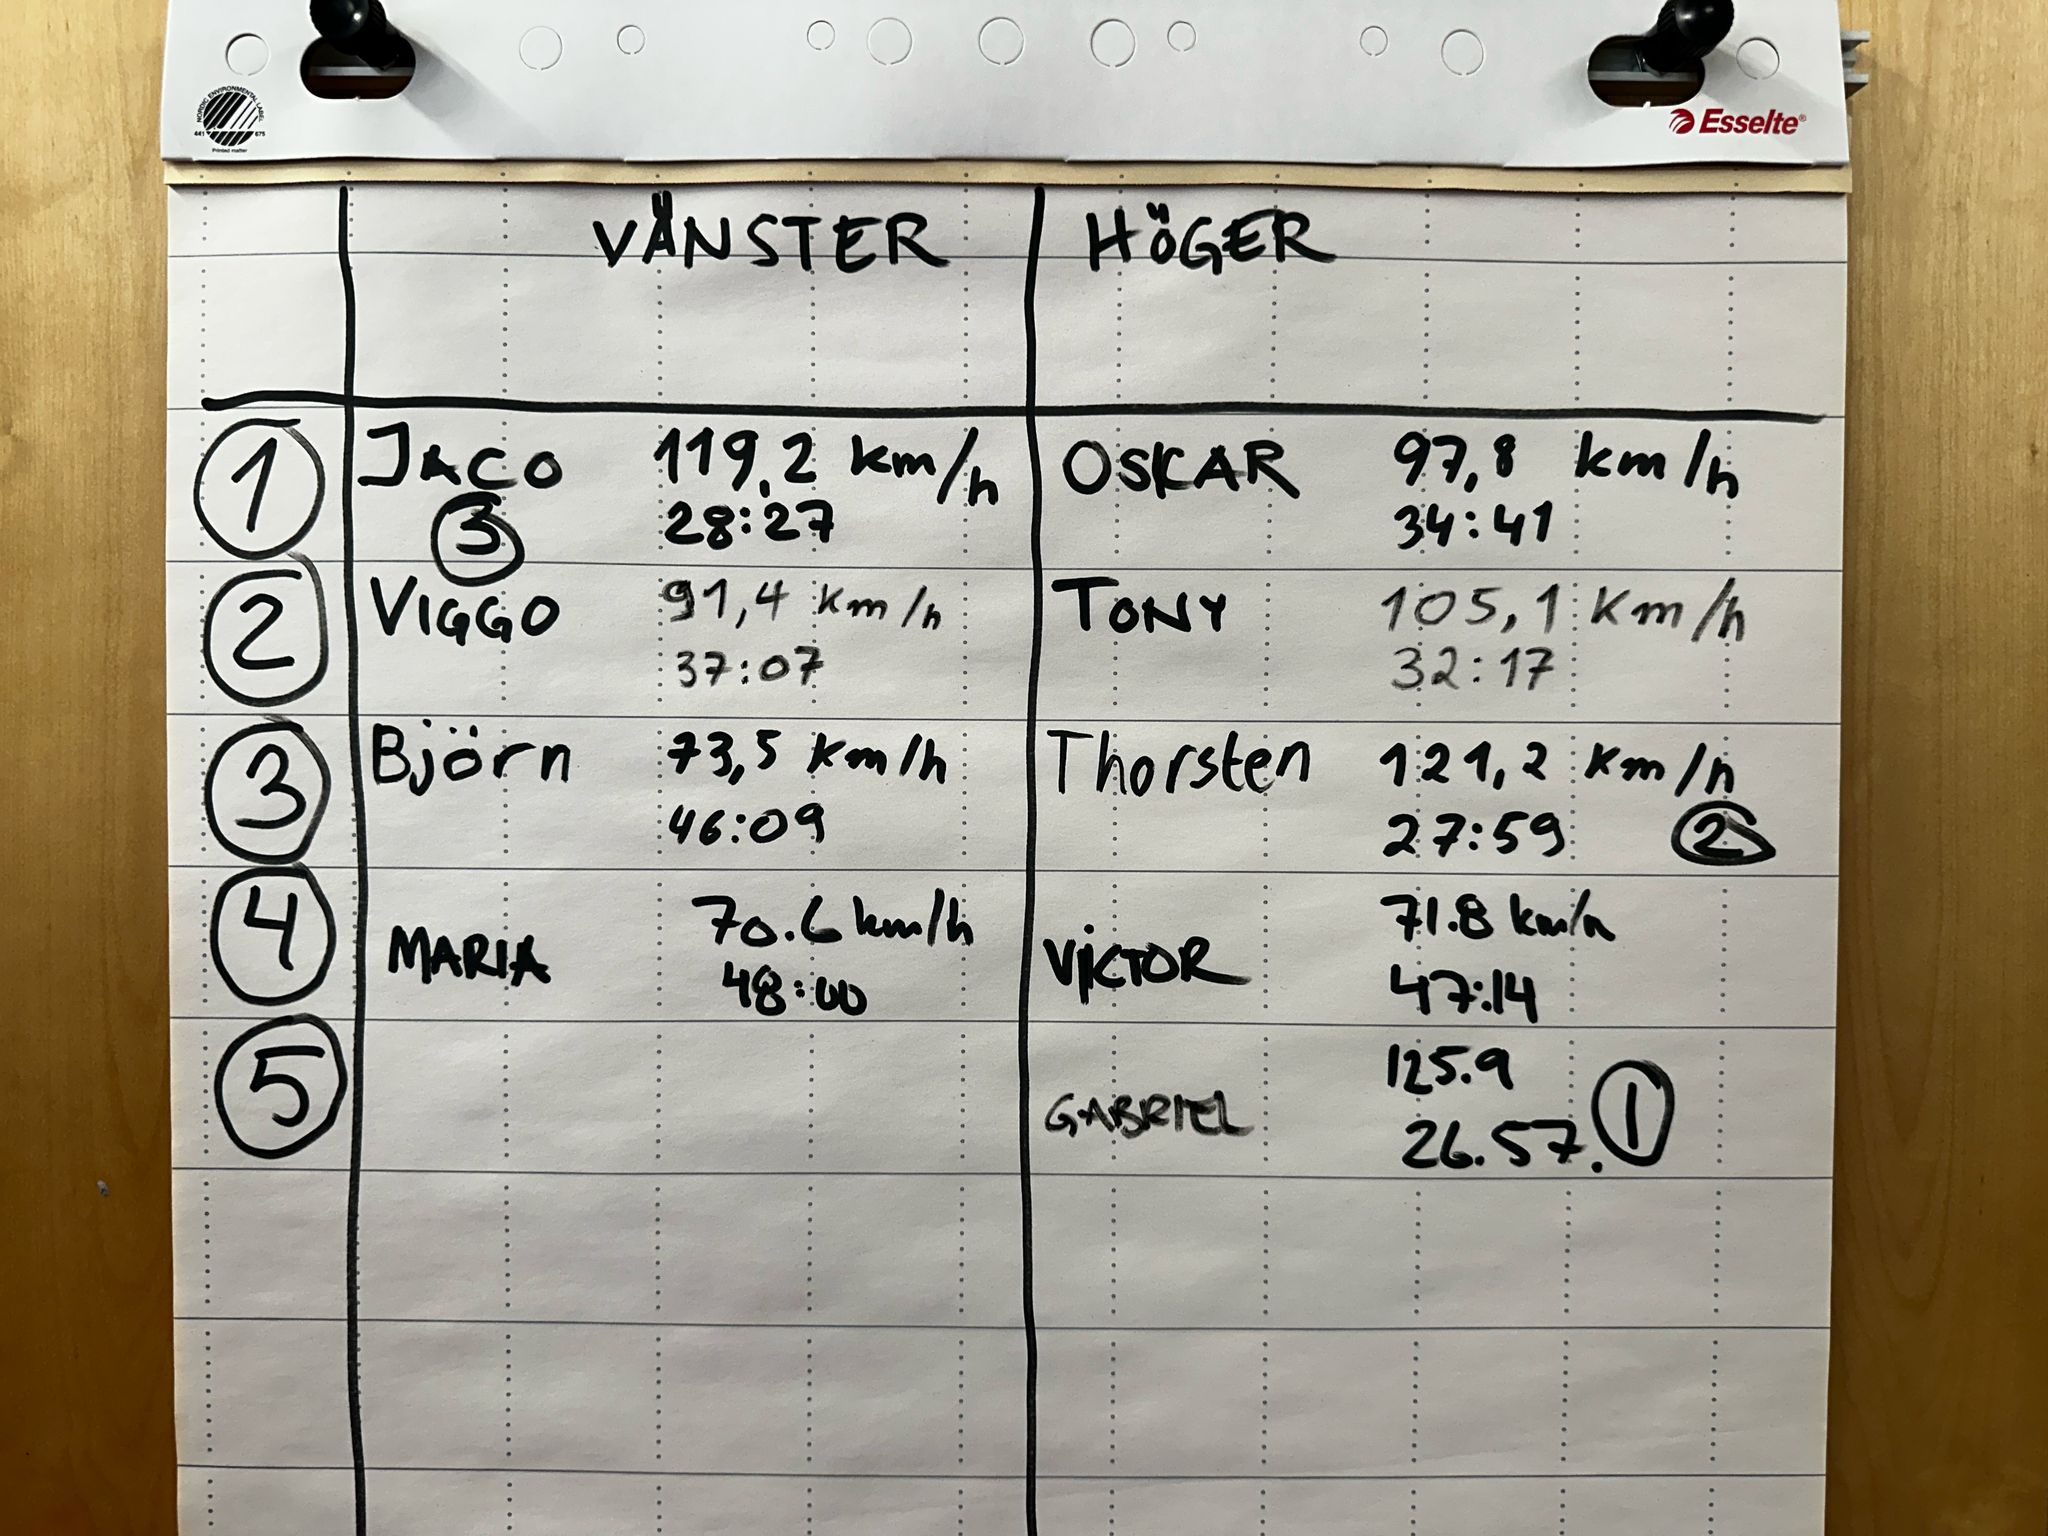 NORDIC ENVIRONMENTAL LABEL
441 675
Printed matter
Esselte
VÄNSTER HÖGER
1 JACO 119,2 km/h OSKAR 97,8 km/h
3 28:27 34:41
2 VIGGO 91,4 km/h TONY 105,1 km/h
37:07 32:17
3 Björn 73,5 km/h Thorsten 121,2 km/h
46:09 27:59 2
4 MARIA 70.6 km/h VICTOR 71.8 km/h
48:00 47:14
5 GABRIEL 125.9
26.57. 1